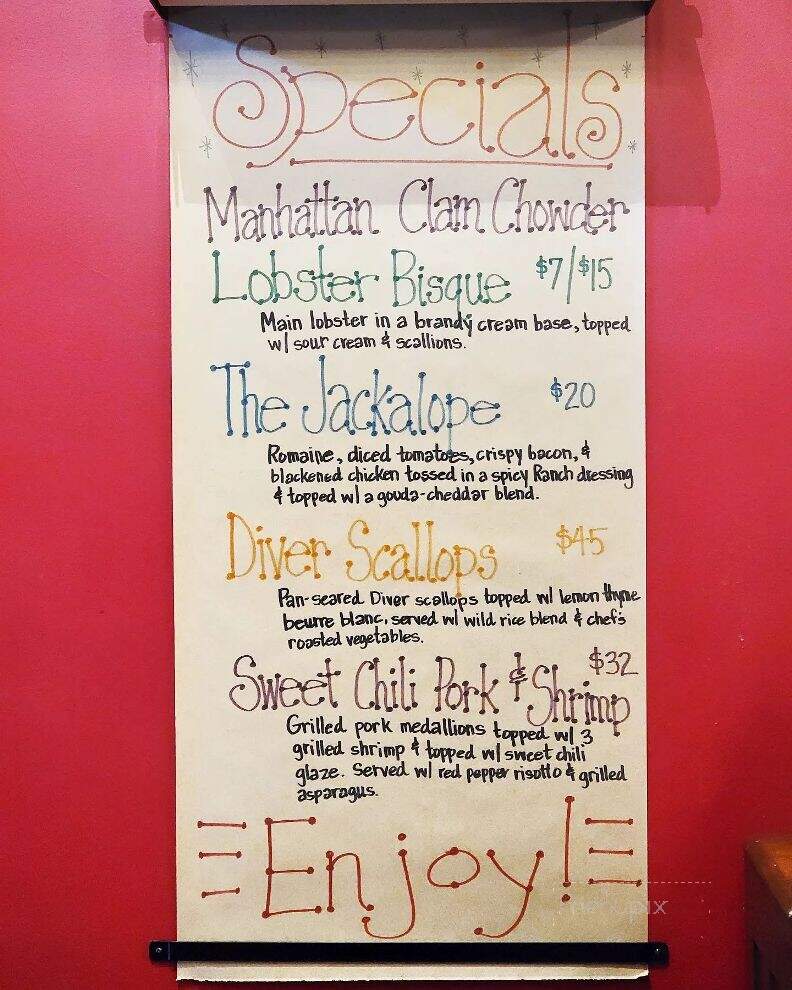 Specials
Manhattan Clam Chowder
Lobster Bisque $7/$15
Main lobster in a brandy cream base, topped
w/ sour cream & scallions.
The Jackalope $20
Romaine, diced tomatoes, crispy bacon, &
blackened chicken tossed in a spicy Ranch dressing
& topped w/ a gouda-cheddar blend.
Diver Scallops $45
Pan-seared Diver scallops topped w/ lemon thyme
beurre blanc, served w/ wild rice blend & chef's
roasted vegetables.
Sweet Chili Pork & Shrimp $32
Grilled pork medallions topped w/ 3
grilled shrimp & topped w/ sweet chili
glaze. Served w/ red pepper risotto & grilled
asparagus.
Enjoy!